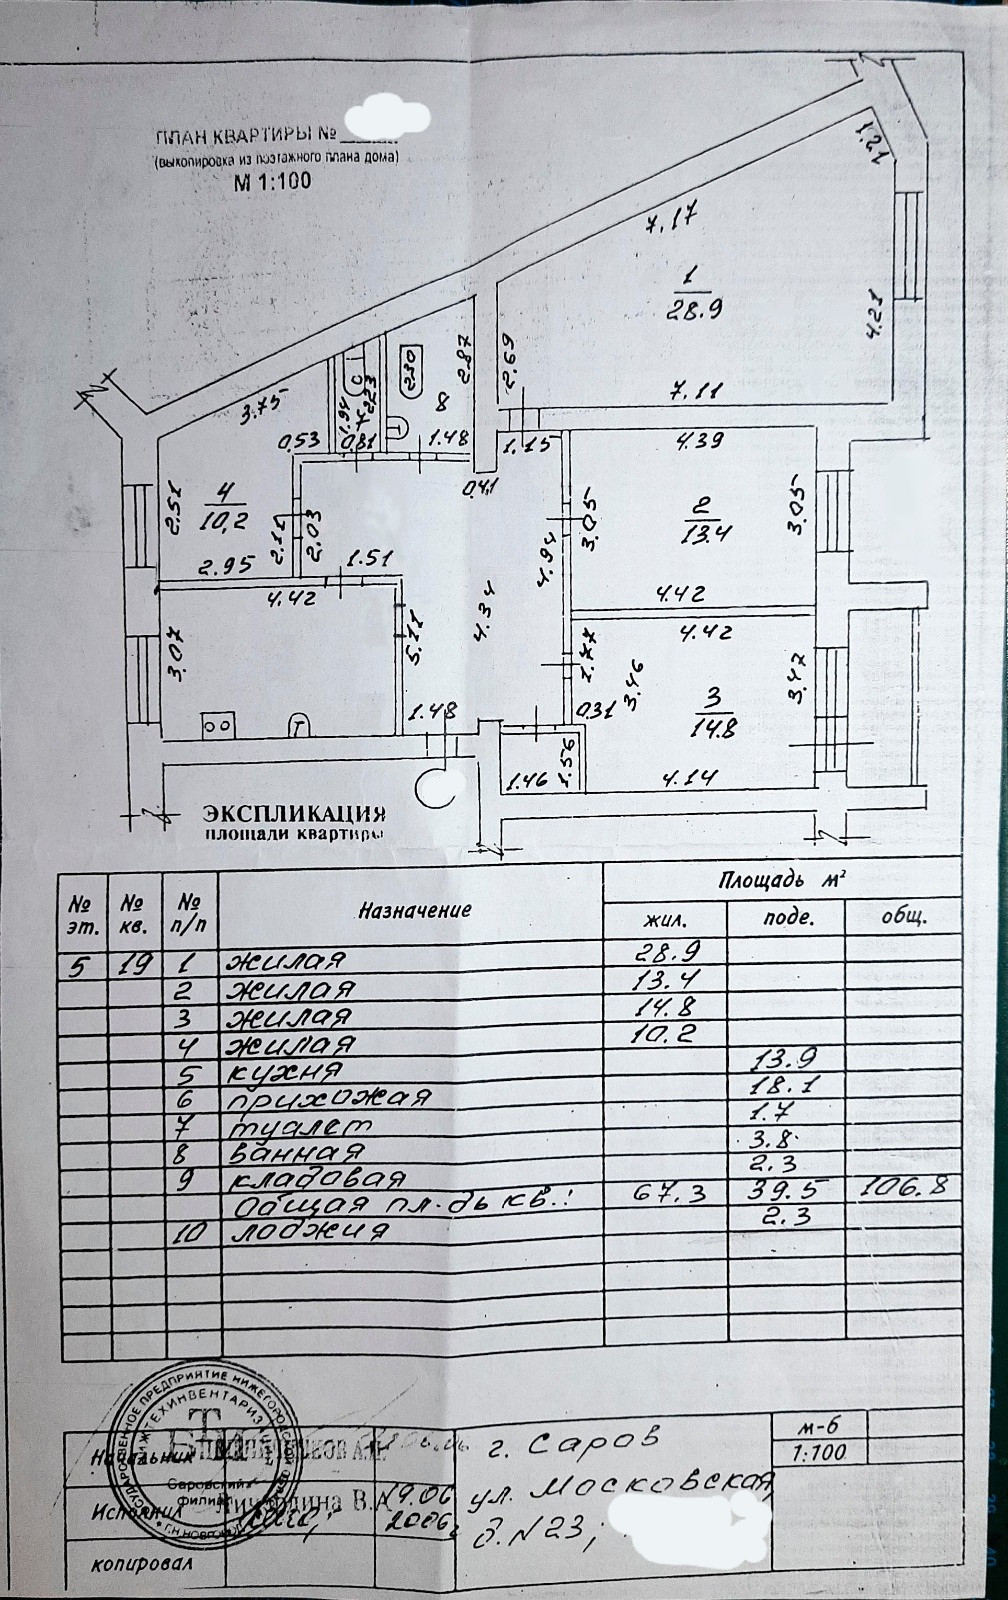 ПЛАН КВАРТИРЫ №
(выкопировка из поэтажного плана дома)
М 1:100
1.21
7.17
1
28.9
4.21
2.69
7.11
2.87
230
8
1.48
С
2.23
1.94
0.81
3.75
0.53
1.15
4.39
0.41
4
10,2
2.51
2.11
2.03
2.95
1.51
4.42
3.07
5.11
4.34
4.94
3.05
2
13.4
3.05
4.42
4.42
1.77
3.46
3.47
3
14.8
0.31
1.48
Т
1.46
1.56
4.14
ЭКСПЛИКАЦИЯ
площади квартиры
№ эт. № кв. № п/п Назначение Площадь м²
жил. поде. общ.
5 19 1 жилая 28.9
2 жилая 13.4
3 жилая 14.8
4 жилая 10.2
5 кухня 13.9
6 прихожая 18.1
7 туалет 1.7
8 ванная 3.8
9 кладовая 2.3
Общая пл-дь кв.: 67.3 39.5 106.8
10 лоджия 2.3
Начальник
Исполнил
В.А. 19.06
2006г
копировал
г. Саров
ул. Московская
д. №23;
м-б
1:100
Саровский
филиал